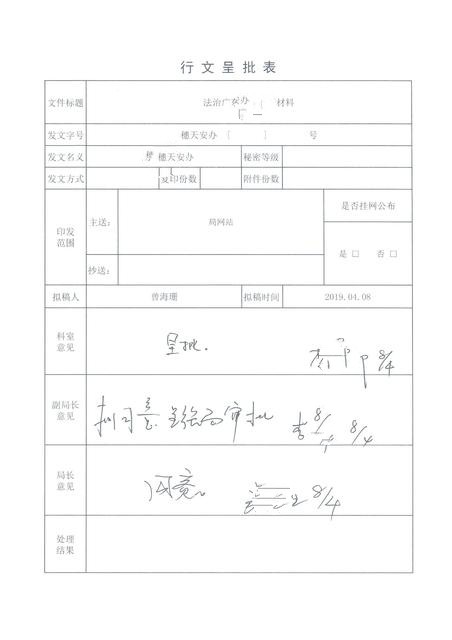 行文呈批表
文件标题 法治广东办 材料
发文字号 穗天安办〔 〕 号
发文名义 穗天安办 秘密等级
发文方式 复印份数 附件份数
印发范围 主送: 局网站 是否挂网公布
是 □ 否 □
抄送:
拟稿人 曾海珊 拟稿时间 2019.04.08
科室意见 呈批. 8/4
副局长意见 拟同意 审批 8/4
局长意见 同意。 8/4
处理结果